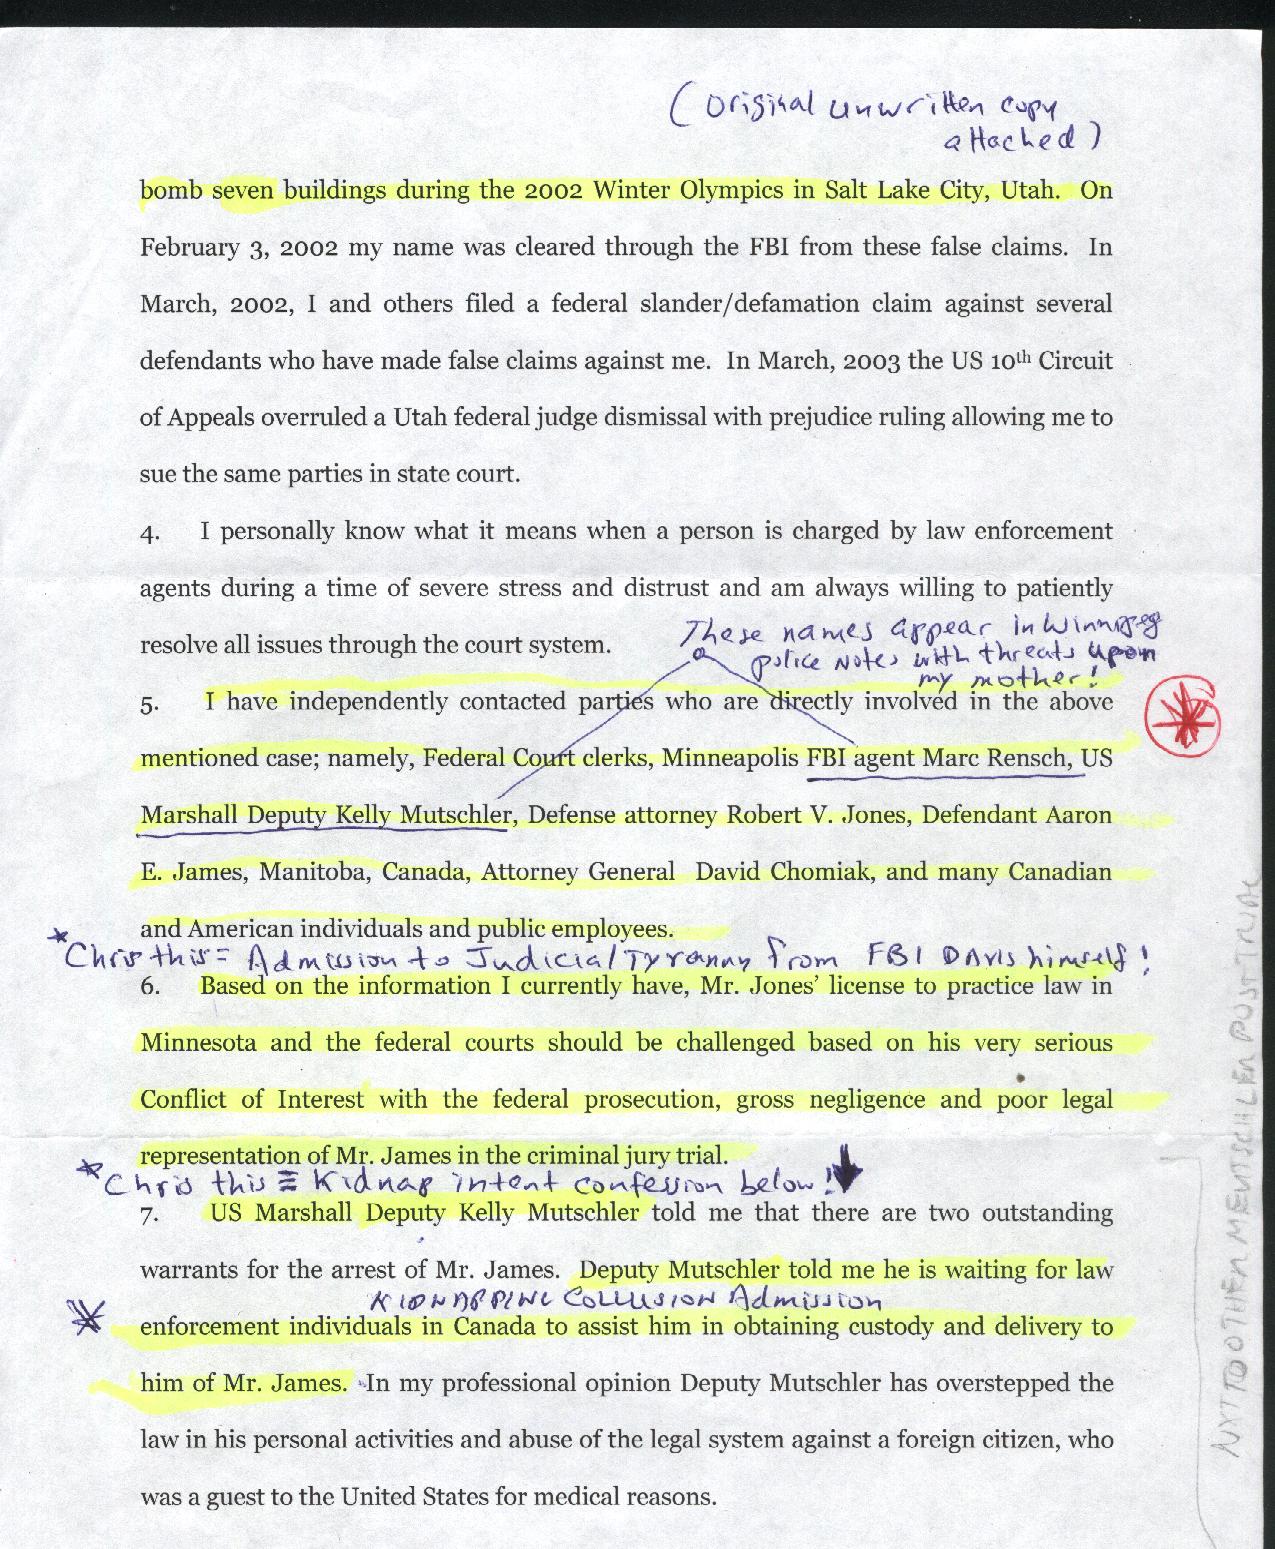 (Original unwritten copy
attached)
bomb seven buildings during the 2002 Winter Olympics in Salt Lake City, Utah. On
February 3, 2002 my name was cleared through the FBI from these false claims. In
March, 2002, I and others filed a federal slander/defamation claim against several
defendants who have made false claims against me. In March, 2003 the US 10th Circuit
of Appeals overruled a Utah federal judge dismissal with prejudice ruling allowing me to
sue the same parties in state court.
4. I personally know what it means when a person is charged by law enforcement
agents during a time of severe stress and distrust and am always willing to patiently
resolve all issues through the court system.
These names appear in Winnipeg
police notes with threats upon
my mother!
5. I have independently contacted parties who are directly involved in the above
mentioned case; namely, Federal Court clerks, Minneapolis FBI agent Marc Rensch, US
Marshall Deputy Kelly Mutschler, Defense attorney Robert V. Jones, Defendant Aaron
E. James, Manitoba, Canada, Attorney General David Chomiak, and many Canadian
and American individuals and public employees.
*Chris this = Admission to Judicial Tyranny from FBI DAVIS himself!
6. Based on the information I currently have, Mr. Jones' license to practice law in
Minnesota and the federal courts should be challenged based on his very serious
Conflict of Interest with the federal prosecution, gross negligence and poor legal
representation of Mr. James in the criminal jury trial.
*Chris this ≡ Kidnap intent confession below!
7. US Marshall Deputy Kelly Mutschler told me that there are two outstanding
warrants for the arrest of Mr. James. Deputy Mutschler told me he is waiting for law
KIDNAPPING COLLUSION Admission
enforcement individuals in Canada to assist him in obtaining custody and delivery to
him of Mr. James. In my professional opinion Deputy Mutschler has overstepped the
law in his personal activities and abuse of the legal system against a foreign citizen, who
was a guest to the United States for medical reasons.
MUTSCHLER POST TRIAL